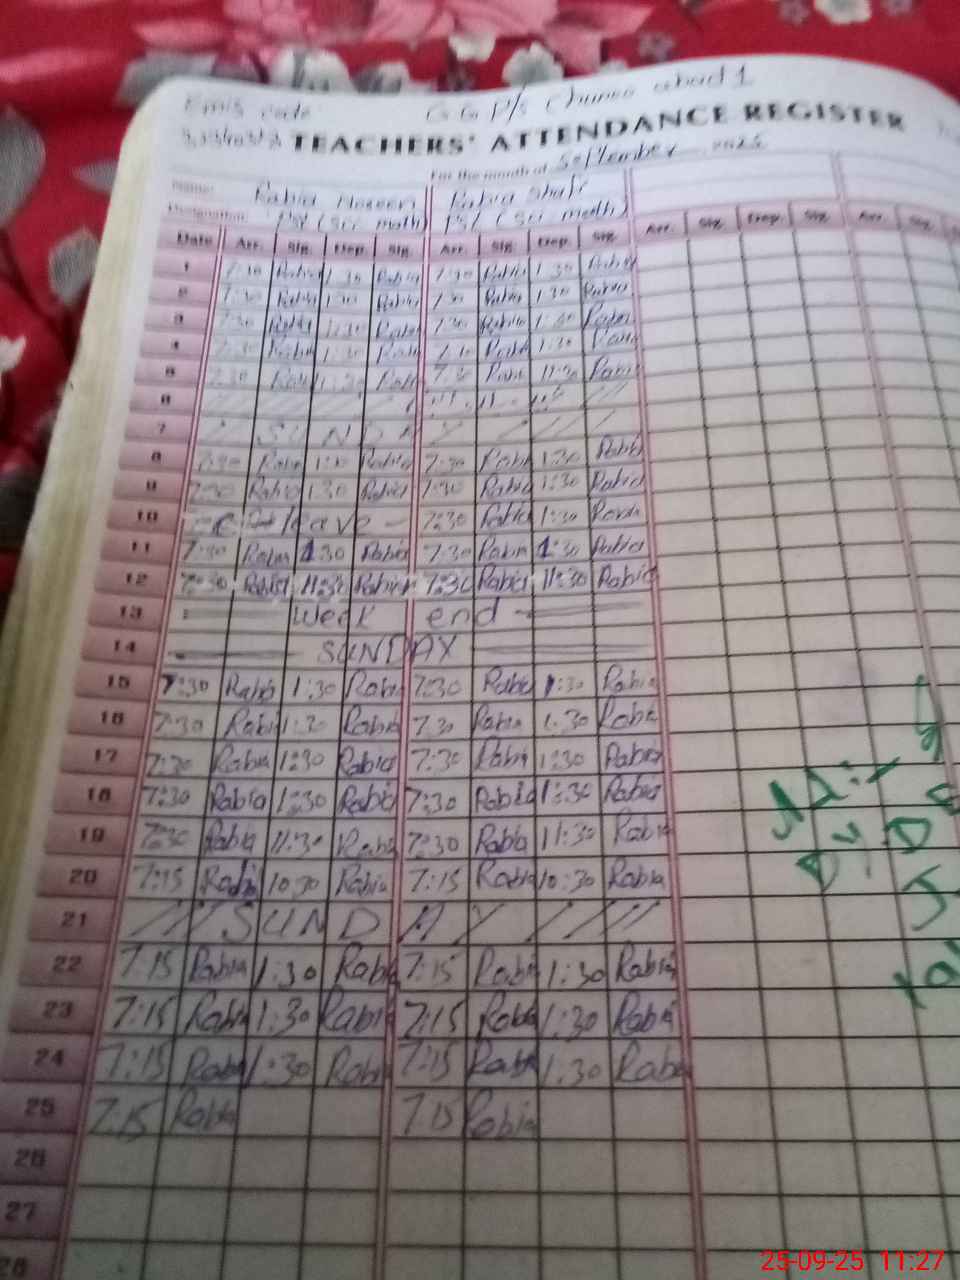 Emis code G G P/S Chunna abad 1
TEACHERS' ATTENDANCE REGISTER
For the month of September 2025
Name: Rabia Noseen Rabia Shafi
Designation PST (Sci math) PST (Sci math)
Date Arr. Sig. Dep. Sig. Arr. Sig. Dep. Sig. Arr. Sig. Dep. Sig. Arr. Sig.
1 7:30 Rabia 1:30 Rabia 7:30 Rabia 1:30 Rabia
2 7:30 Rabia 1:30 Rabia 7:30 Rabia 1:30 Rabia
3 7:30 Rabia 1:30 Rabia 7:30 Rabia 1:30 Rabia
4 7:30 Rabia 1:30 Rabia 7:30 Rabia 1:30 Rabia
5 7:30 Rabia 11:30 Rabia 7:30 Rabia 11:30 Rabia
6
7 SUNDAY
8 7:30 Rabia 1:30 Rabia 7:30 Rabia 1:30 Rabia
9 7:30 Rabia 1:30 Rabia 7:30 Rabia 1:30 Rabia
10 leave 7:30 Rabia 1:30 Rabia
11 7:30 Rabia 1:30 Rabia 7:30 Rabia 1:30 Rabia
12 7:30 Rabia 11:30 Rabia 7:30 Rabia 11:30 Rabia
13 Week end
14 SUNDAY
15 7:30 Rabia 1:30 Rabia 7:30 Rabia 1:30 Rabia
16 7:30 Rabia 1:30 Rabia 7:30 Rabia 1:30 Rabia
17 7:30 Rabia 1:30 Rabia 7:30 Rabia 1:30 Rabia
18 7:30 Rabia 1:30 Rabia 7:30 Rabia 1:30 Rabia
19 7:30 Rabia 11:30 Rabia 7:30 Rabia 11:30 Rabia
20 7:15 Rabia 10:30 Rabia 7:15 Rabia 10:30 Rabia
21 SUNDAY
22 7:15 Rabia 1:30 Rabia 7:15 Rabia 1:30 Rabia
23 7:15 Rabia 1:30 Rabia 7:15 Rabia 1:30 Rabia
24 7:15 Rabia 1:30 Rabia 7:15 Rabia 1:30 Rabia
25 7:15 Rabia 7:15 Rabia
26
27
28
25-09-25 11:27